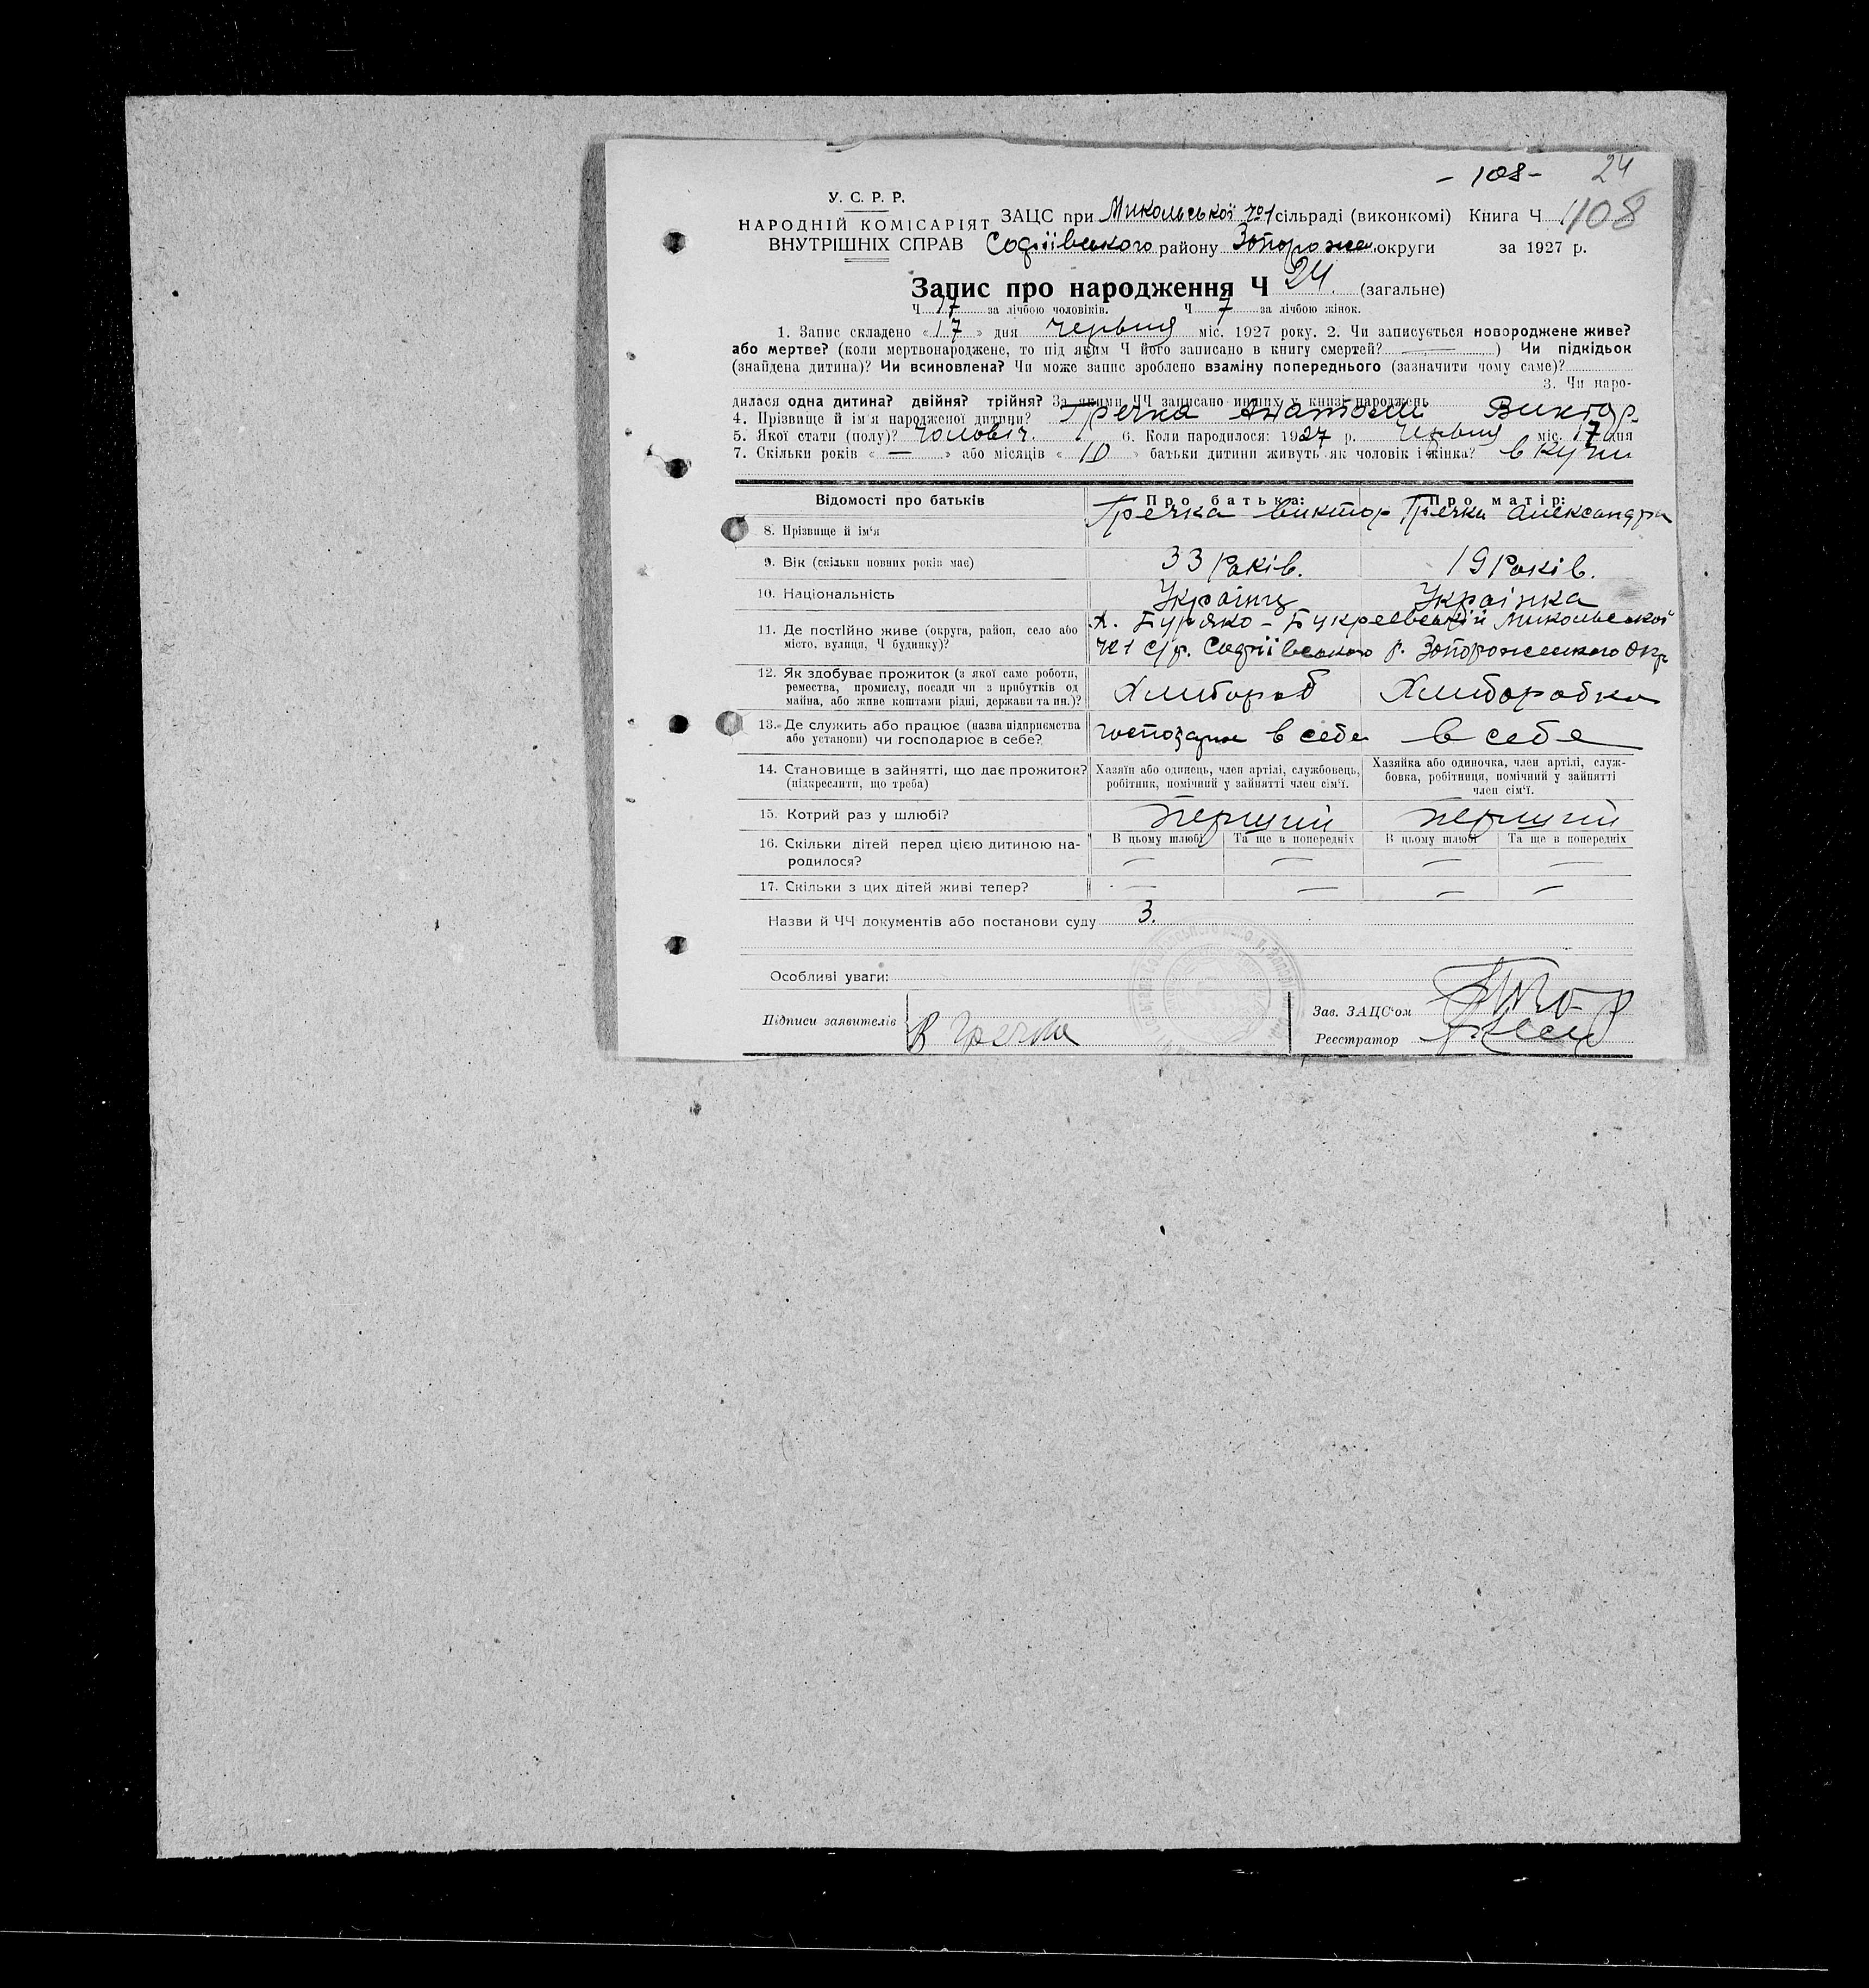 - 108 - 24
108
У. С. Р. Р.
НАРОДНІЙ КОМІСАРІЯТ
ВНУТРІШНІХ СПРАВ
ЗАЦС при Микольської №1 сільраді (виконкомі) Книга Ч
Софіївського району Запорожск. округи за 1927 р.
Запис про народження Ч 24. (загальне)
Ч 17 за лічбою чоловіків. Ч 7 за лічбою жінок.
1. Запис складено «17» дня червня міс. 1927 року. 2. Чи записується новороджене живе?
або мертве? (коли мертвонароджене, то під яким Ч його записано в книгу смертей? —) Чи підкідьок
(знайдена дитина)? Чи всиновлена? Чи може запис зроблено взаміну попереднього (зазначити чому саме)?
3. Чи наро-
дилася одна дитина? двійня? трійня? За якими ЧЧ записано инших у книзі народжень
4. Прізвище й ім'я народженої дитини? Гречка Анатолий Виктор.
5. Якої стати (полу)? Чоловіч. 6. Коли народилося: 1927 р. червня міс. 17 дня
7. Скільки років « — » або місяців « 10 » батьки дитини живуть як чоловік і жінка? в купи
Відомості про батьків Про батька: Про матір:
8. Прізвище й ім'я Гречка Виктор Гречка Александра
9. Вік (скільки повних років має) 33 Років. 19 Років.
10. Національність Українц Українка
11. Де постійно живе (округа, район, село або
місто, вулиця, Ч будинку)?
х. Буряко - Букреевський Микольської
№1 с/р. Софіївського р. Запорожского Окр
12. Як здобуває прожиток (з якої саме роботи,
ремества, промислу, посади чи з прибутків од
майна, або живе коштами рідні, держави та ин.)?
Хлибороб Хлиборобка
13. Де служить або працює (назва підприємства
або установи) чи господарює в себе?
господарює в себе в себе
14. Становище в зайнятті, що дає прожиток?
(підкреслити, що треба)
Хазяїн або одинець, член артілі, службовець,
робітник, помічний у зайнятті член сім'ї.
Хазяйка або одиночка, член артілі, служ-
бовка, робітниця, помічний у зайнятті
член сім'ї.
15. Котрий раз у шлюбі? перший перший
16. Скільки дітей перед цією дитиною на-
родилося?
В цьому шлюбі Та ще в попередніх В цьому шлюбі Та ще в попередніх
— — — —
17. Скільки з цих дітей живі тепер? — — — —
Назви й ЧЧ документів або постанови суду 3.
Особливі уваги:
Підписи заявителів В Гречка
Зав. ЗАЦС'ом
Реєстратор